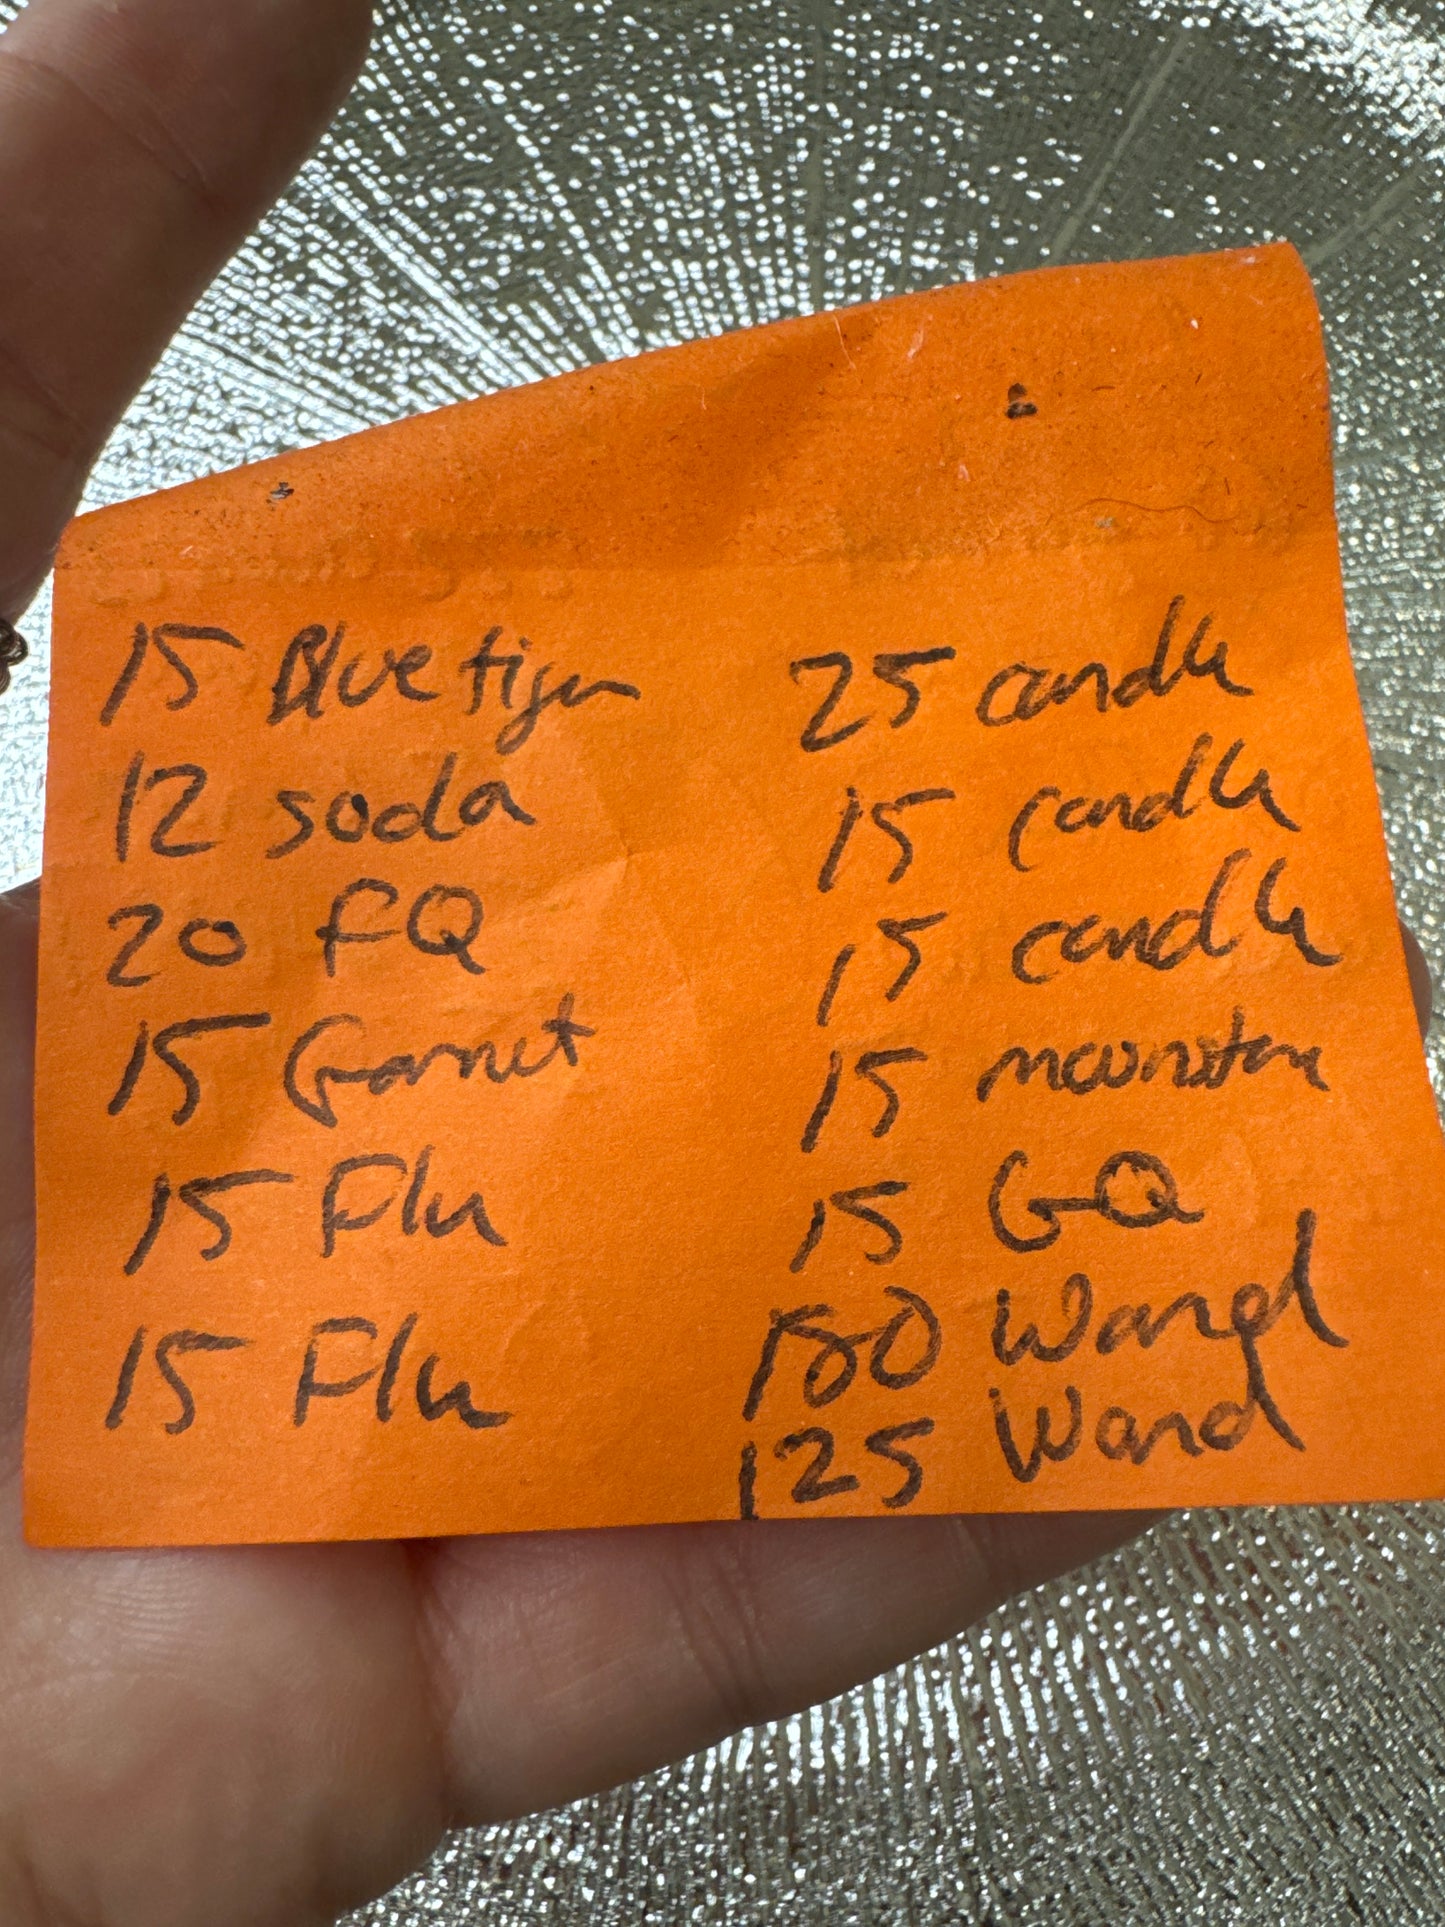 15 Blue tiger
12 soda
20 FQ
15 Garnet
15 Flu
15 Flu
25 candle
15 candle
15 candle
15 moonstone
15 GQ
180 Wand
125 Wand